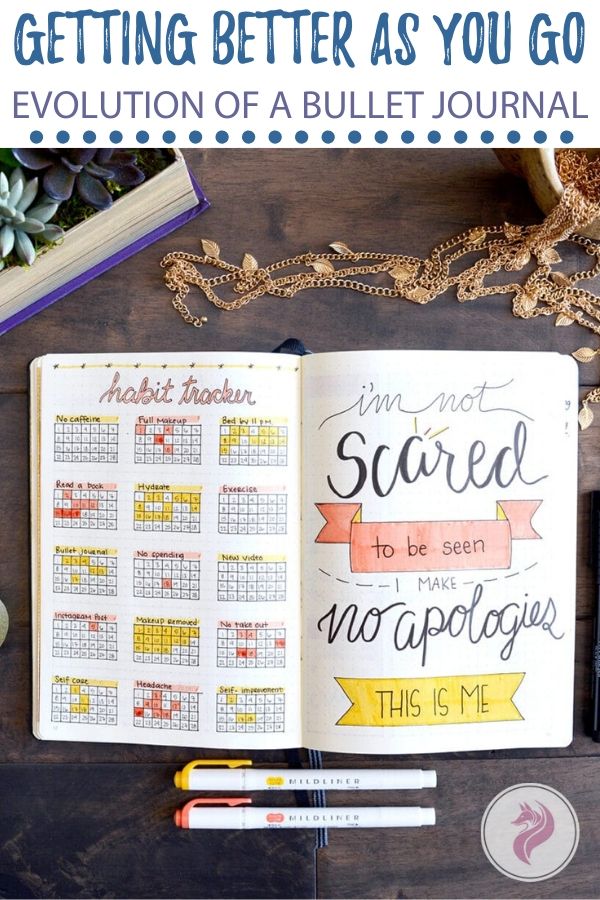 GETTING BETTER AS YOU GO
EVOLUTION OF A BULLET JOURNAL
habit tracker
No caffeine
Full Makeup
Bed by 11 p.m.
Read a book
Hydrate
Exercise
Bullet journal
No spending
New video
Instagram Post
Makeup removed
No take out
Self care
Headache
Self-improvement
i'm not
scared
to be seen
I MAKE
no apologies
THIS IS ME
MILDLINER
MILDLINER